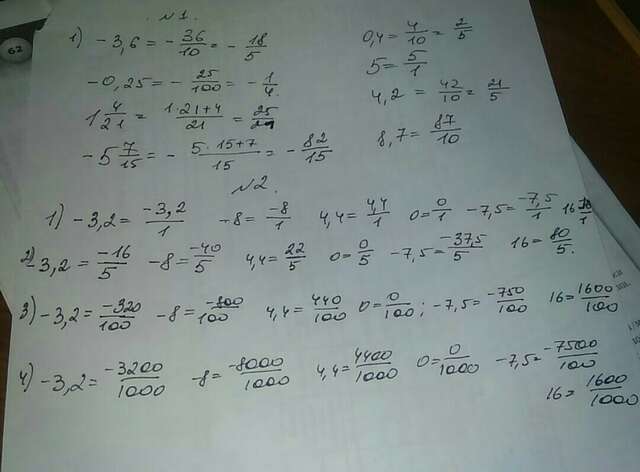 №1.
1) -3,6 = -36/10 = -18/5   0,4 = 4/10 = 2/5
-0,25 = -25/100 = -1/4.   5 = 5/1
1 4/21 = 1·21+4/21 = 25/21   4,2 = 42/10 = 21/5
-5 7/15 = -5·15+7/15 = -82/15   8,7 = 87/10
№2.
1) -3,2 = -3,2/1   -8 = -8/1   4,4 = 4,4/1   0 = 0/1   -7,5 = -7,5/1
2) -3,2 = -16/5   -8 = -40/5   4,4 = 22/5   0 = 0/5   -7,5 = -37,5/5   16 = 80/5.
3) -3,2 = -320/100   -8 = -800/100   4,4 = 440/100   0 = 0/100;   -7,5 = -750/100   16 = 1600/100
4) -3,2 = -3200/1000   -8 = -8000/1000   4,4 = 4400/1000   0 = 0/1000   -7,5 = -7500/1000
16 = 1600/1000
62